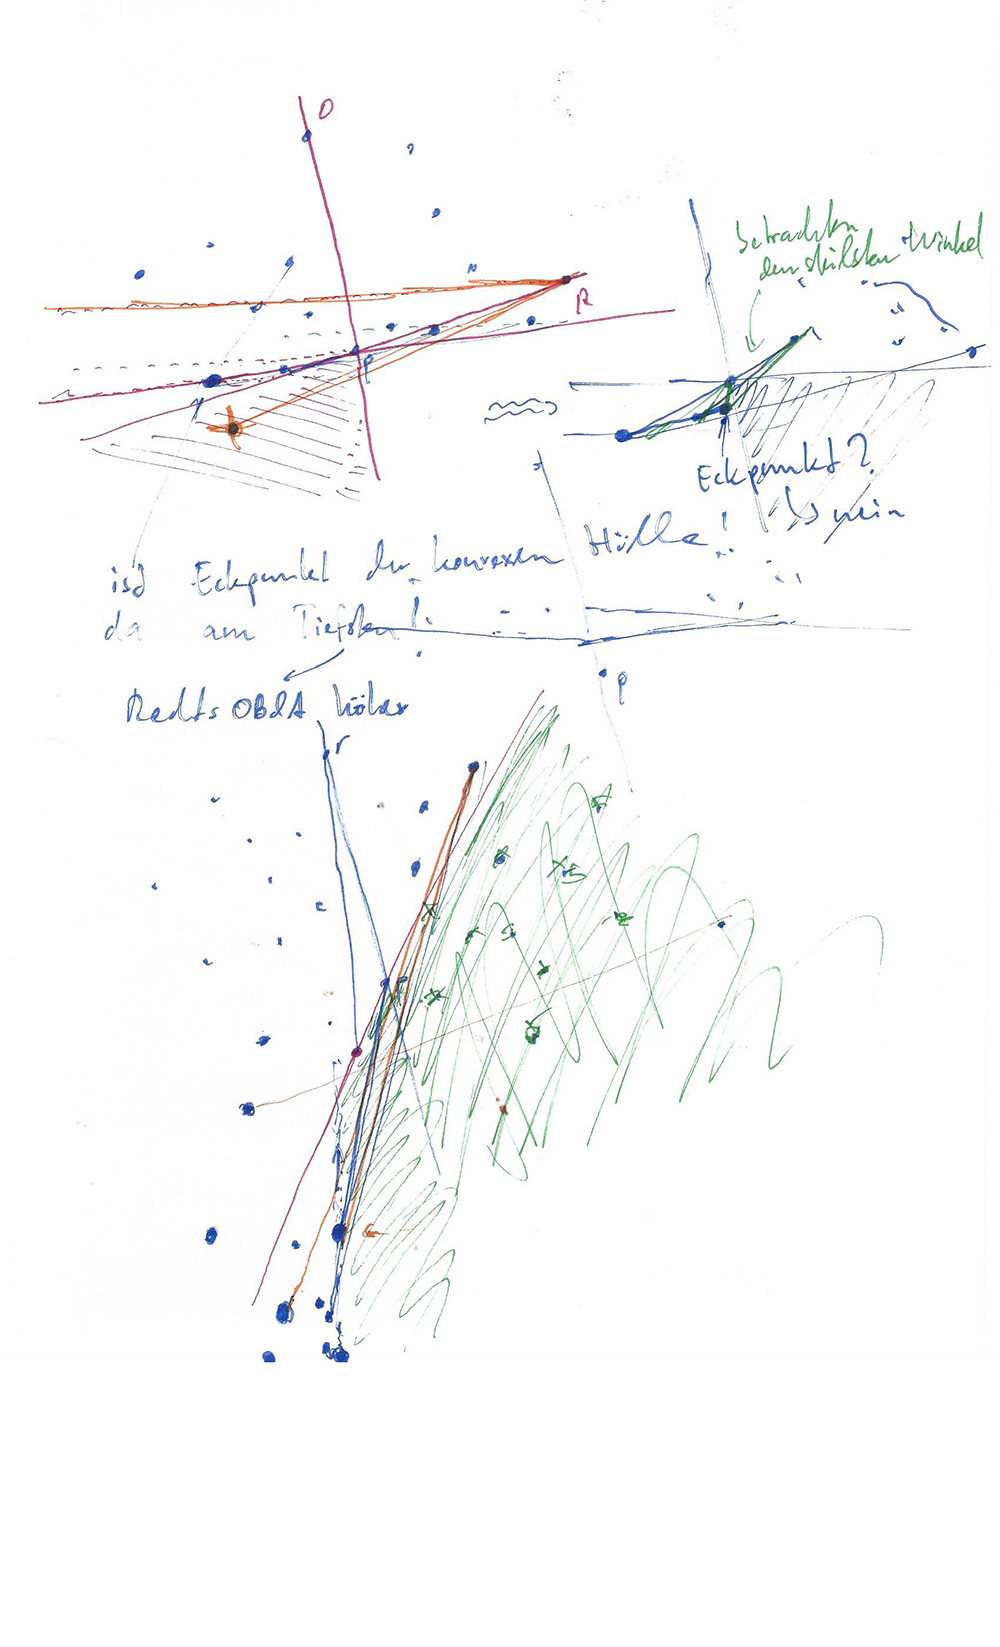 O
R
P
betrachten
den steilsten Winkel
Eckpunkt?
↳ nein
ist Eckpunkt der konvexen Hülle!
da am Tiefsten!
p
Rechts OBdA höher
r